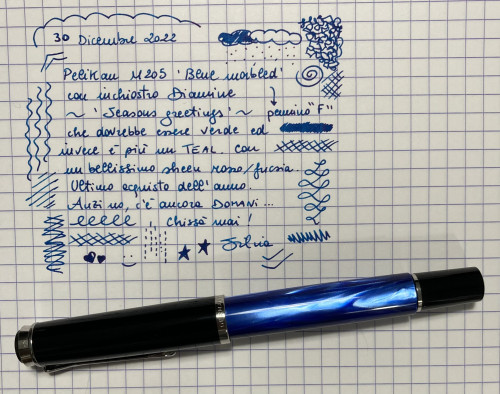 30 Dicembre 2022
Pelikan M205 'Blue marbled'
con inchiostro Diamine
~ 'Seasons greetings' ~ pennino "F"
che dovrebbe essere verde ed
invece è più un TEAL con
un bellissimo sheen rosso/fucsia.
Ultimo acquisto dell'anno.
Anzi no, c'è ancora DOMANI...
Chissà mai!
Silvia